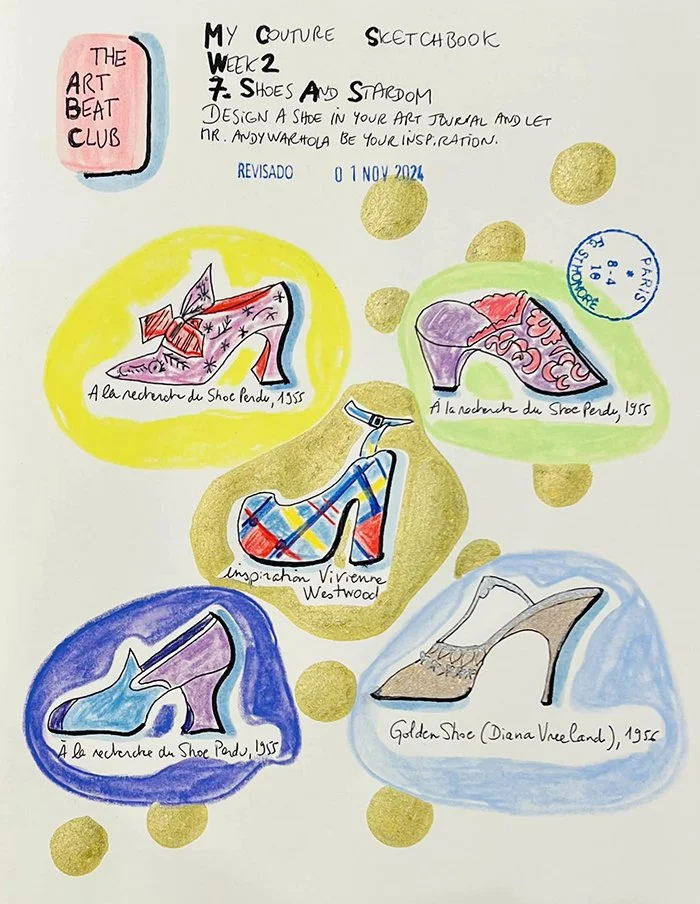 THE
ART
BEAT
CLUB
MY COUTURE SKETCHBOOK
WEEK 2
7- SHOES AND STARDOM
DESIGN A SHOE IN YOUR ART JOURNAL AND LET
MR. ANDY WARHOLA BE YOUR INSPIRATION.
REVISADO 01 NOV 2024
PARIS
*
8-4
18
ST HONORÉ
A la recherche du Shoe Perdu, 1955
À la recherche du Shoe Perdu, 1955
inspiration Vivienne
Westwood
À la recherche du Shoe Perdu, 1955
Golden Shoe (Diana Vreeland), 1956